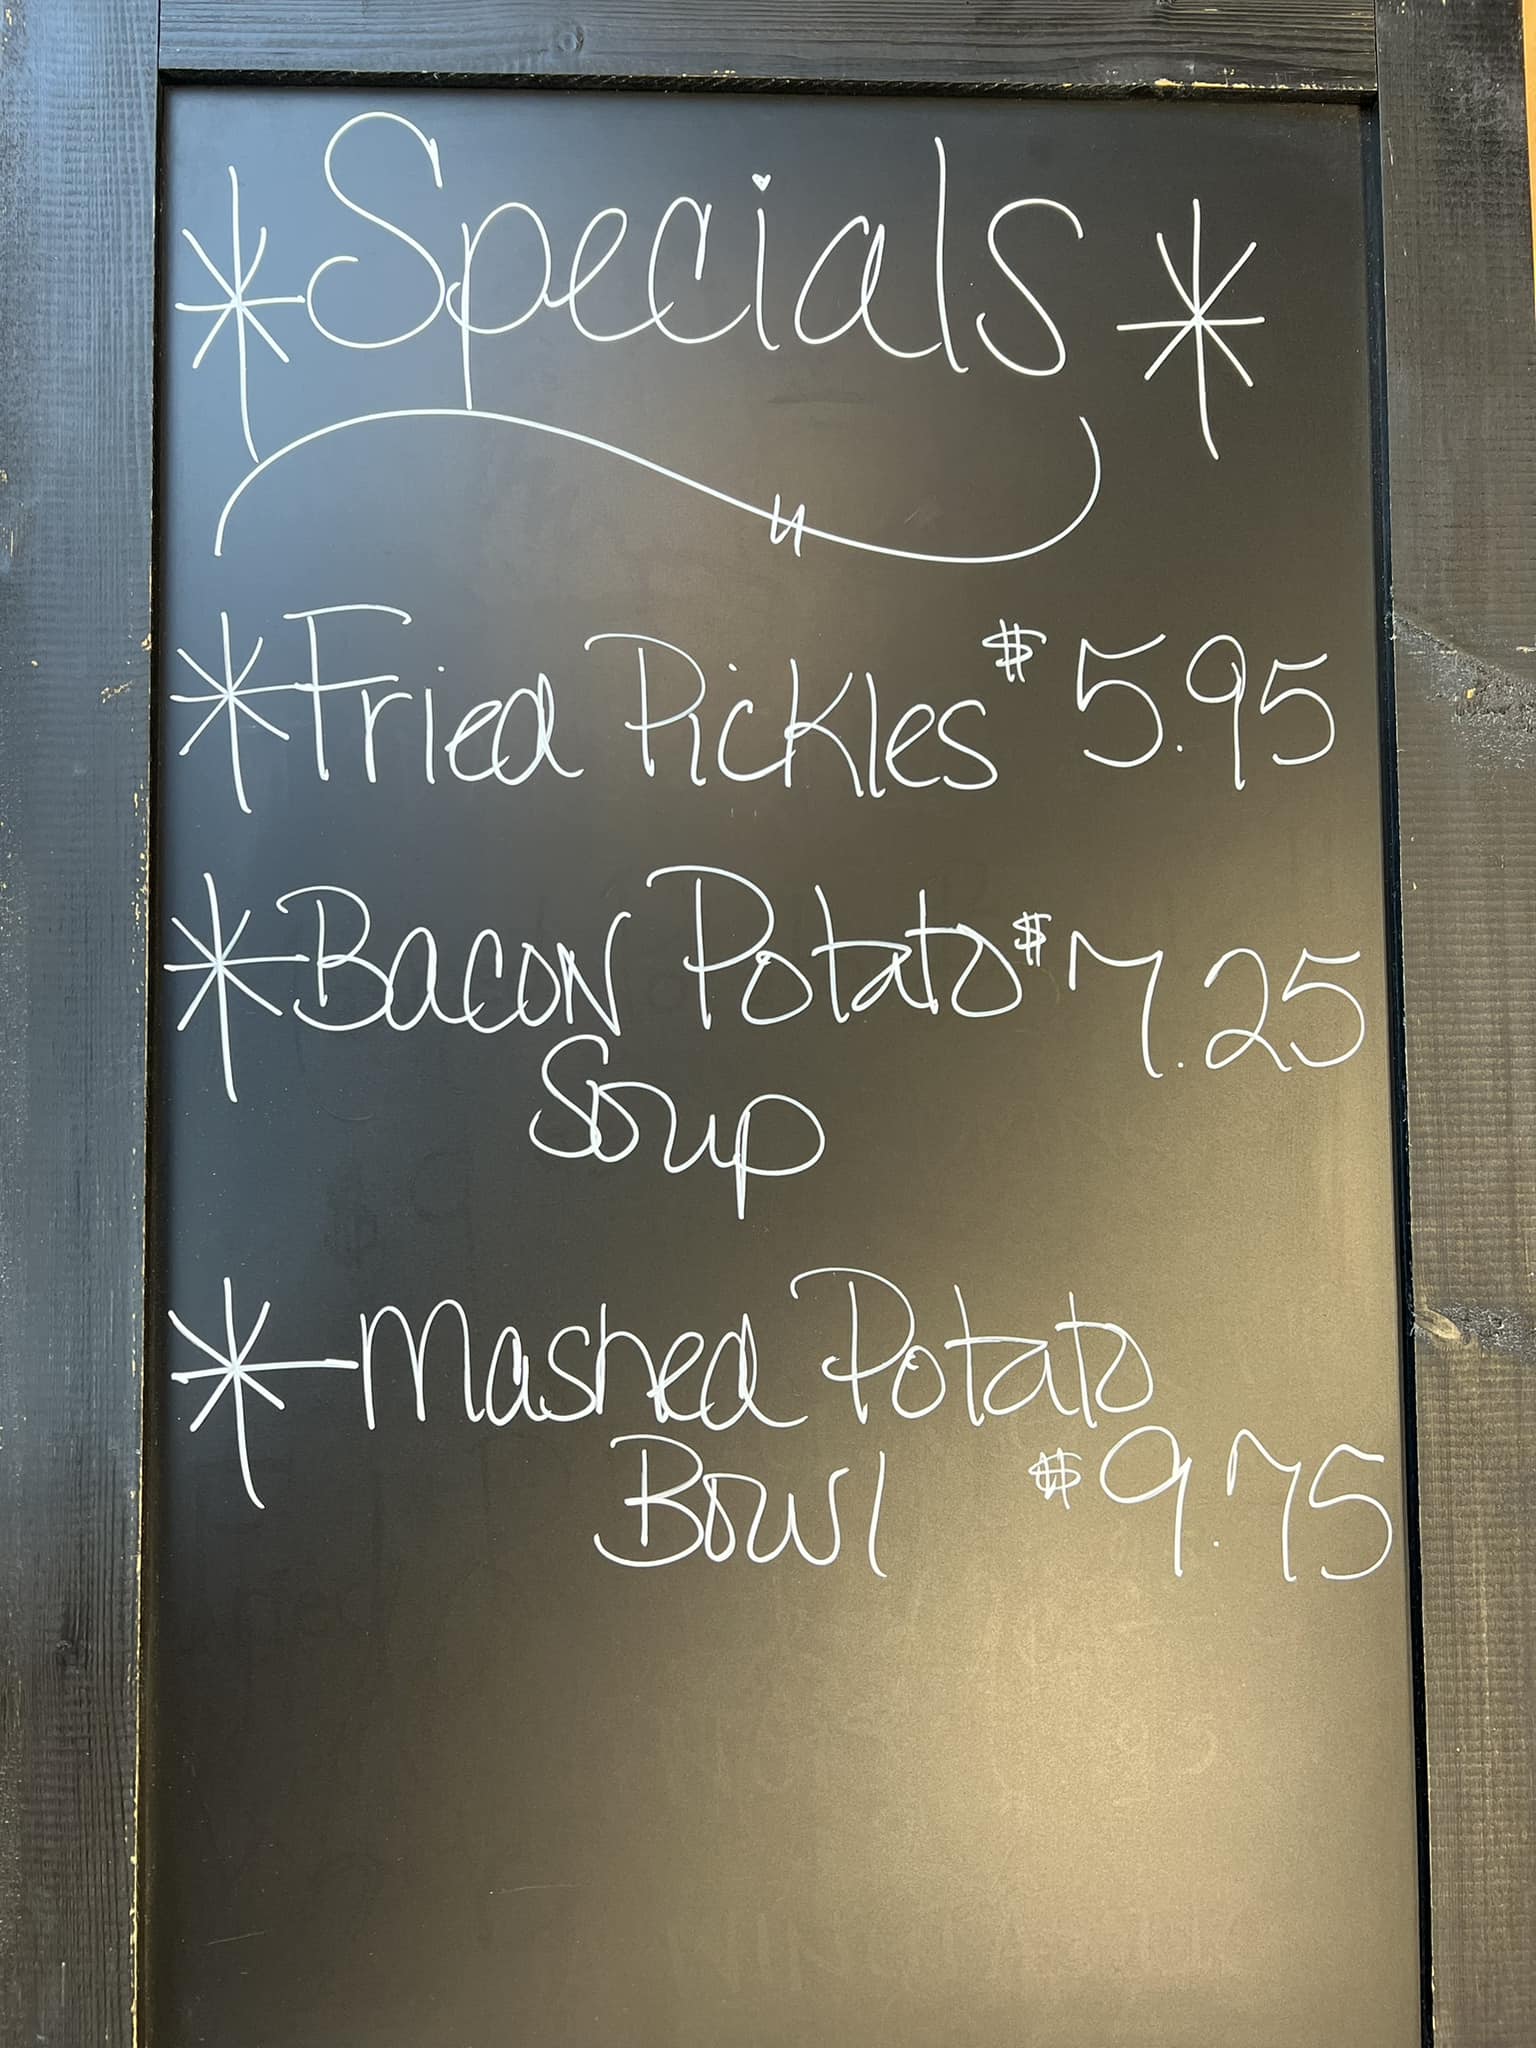 * Specials *
* Fried Pickles $5.95
* Bacon Potato $7.25
Soup
* Mashed Potato
Bowl $9.75